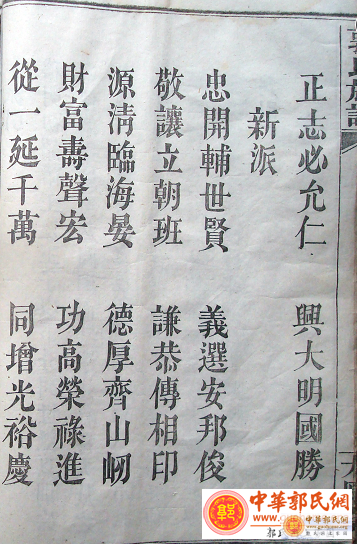 正志必允仁 興大明國勝
新派
忠開輔世賢 義選安邦俊
敬讓立朝班 謙恭傳相印
源清臨海晏 德厚齊山岰
財富壽聲宏 功高榮祿進
從一延千萬 同增光裕慶
中華郭氏網